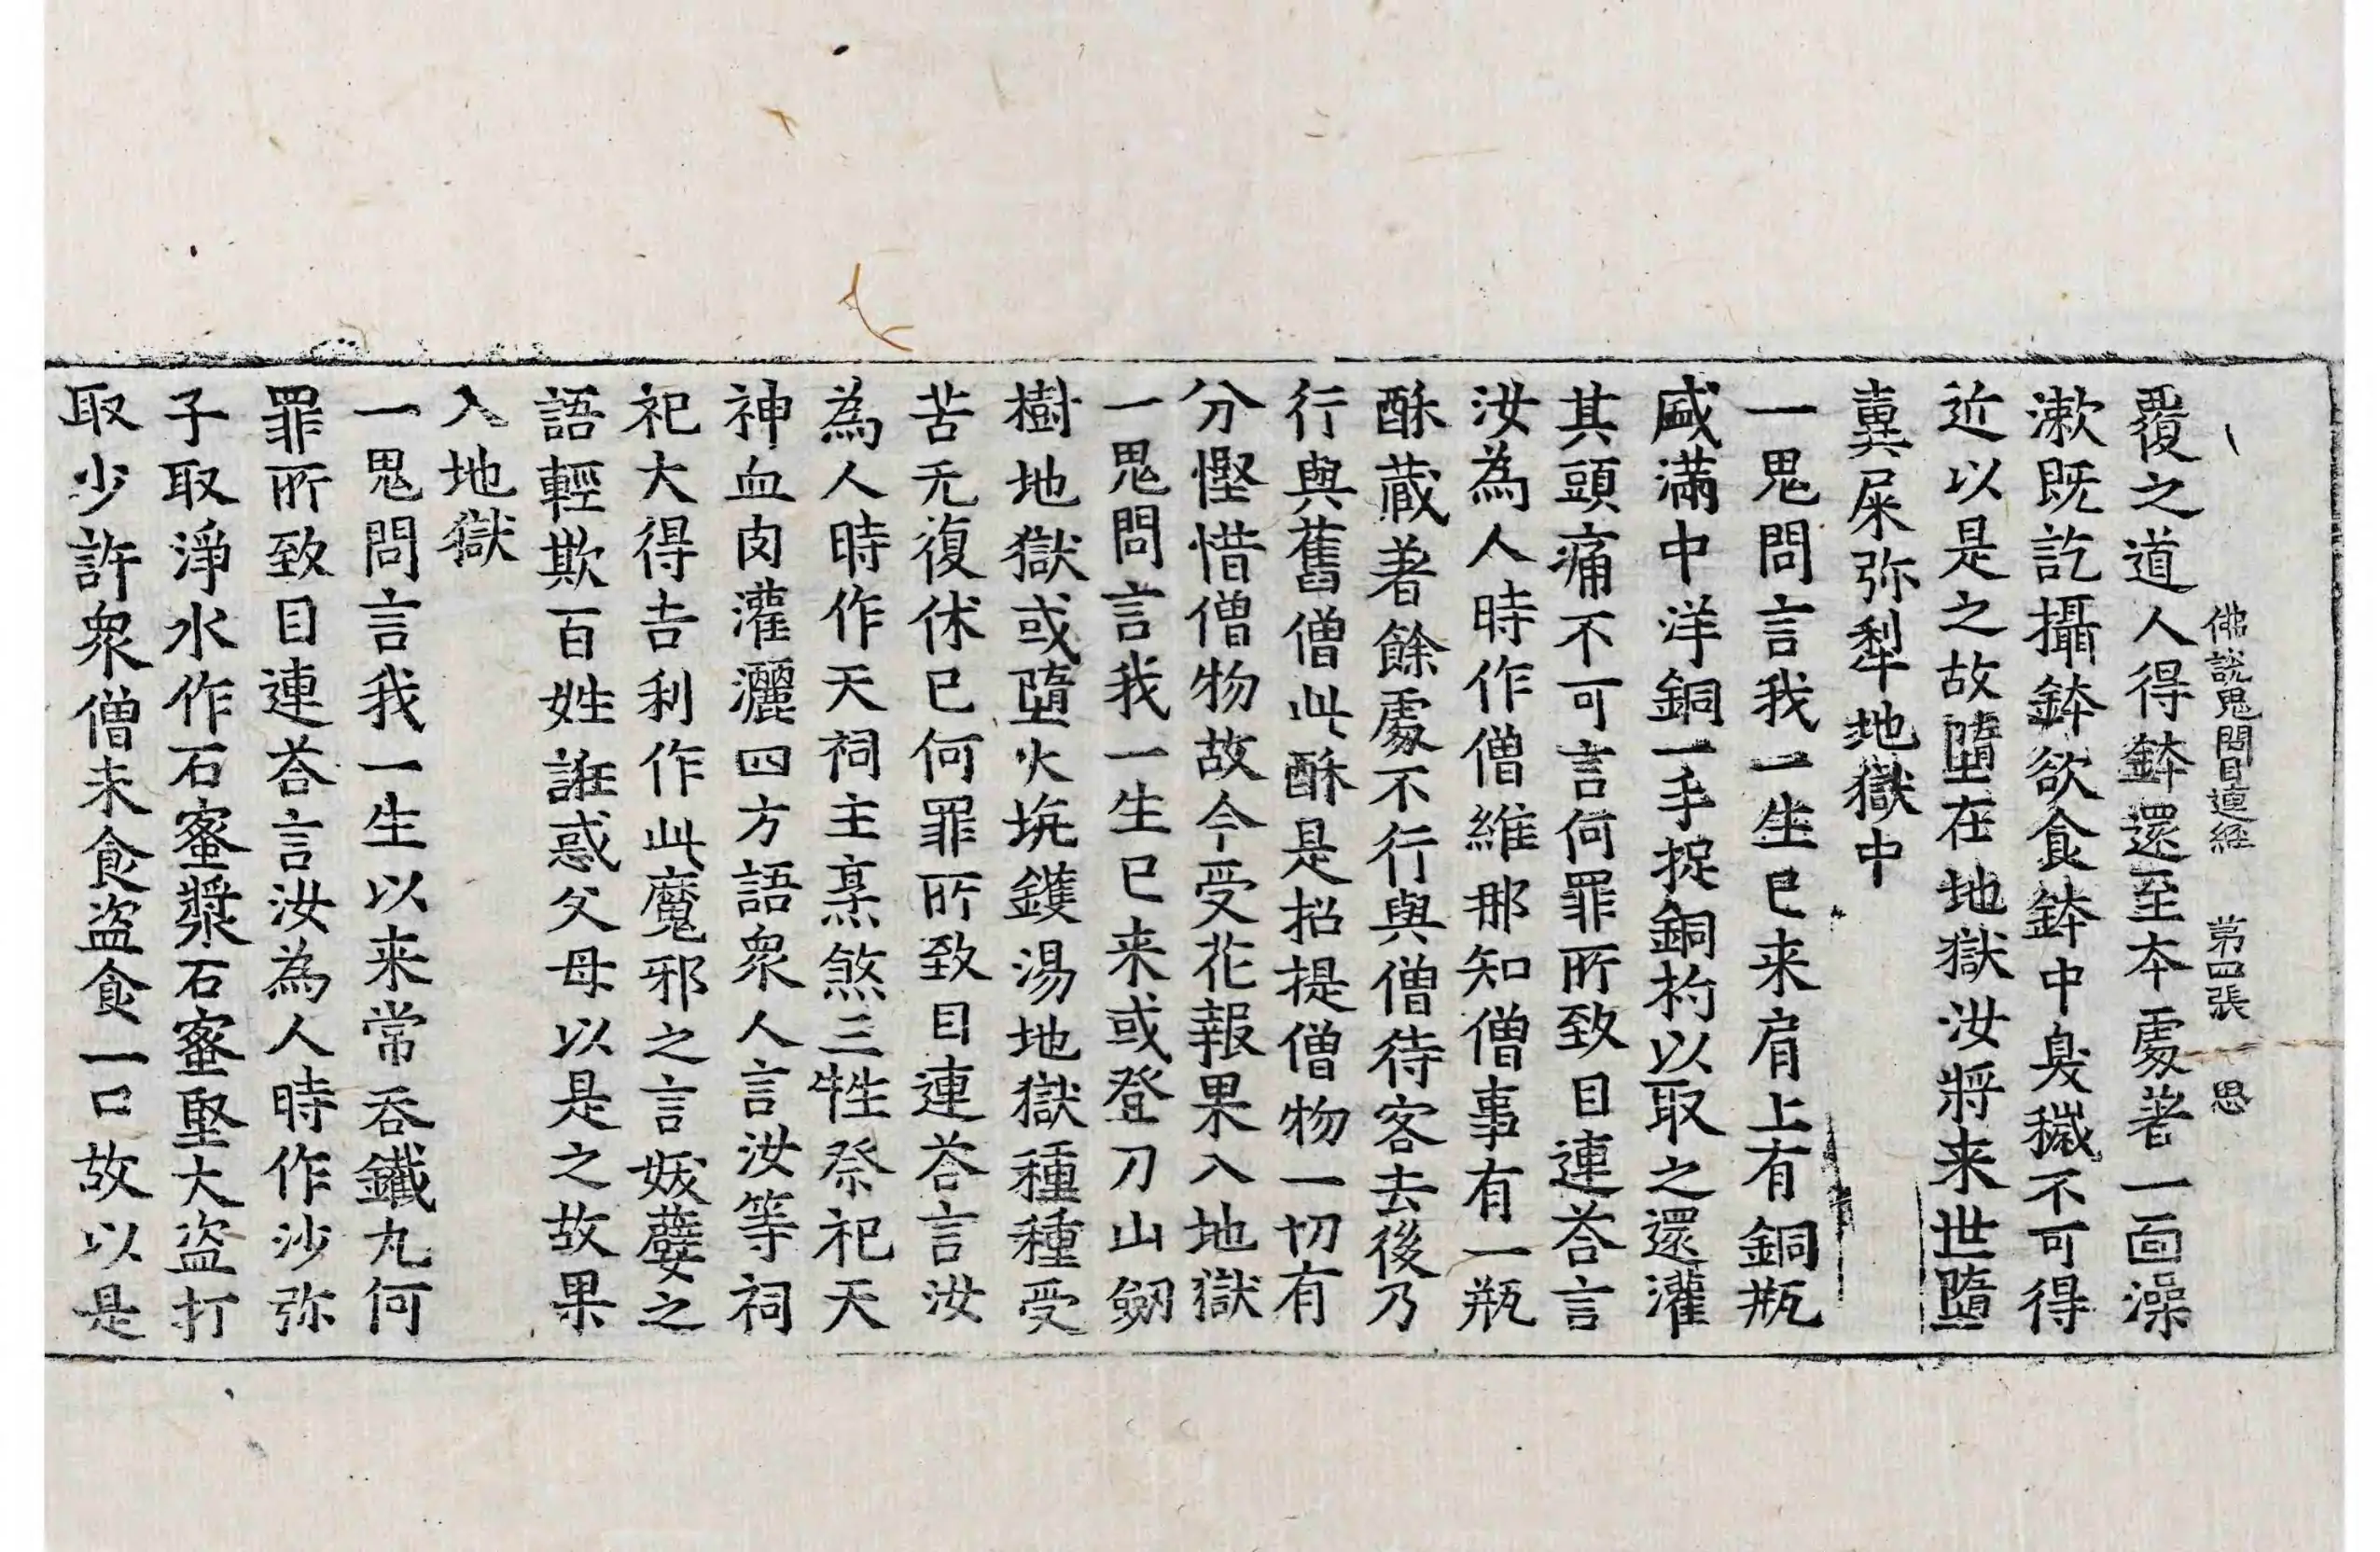 佛說鬼問目連經 第四張 思
覆之道人得鉢還至本處著一面澡
漱既訖攝鉢欲食鉢中臭穢不可得
近以是之故墮在地獄汝將来世墮
糞屎弥犁地獄中
一鬼問言我一生已来肩上有銅瓶
盛滿中洋銅一手捉銅杓以取之還灌
其頭痛不可言何罪所致目連荅言
汝為人時作僧維那知僧事有一瓶
酥蔵著餘處不行與僧待客去後乃
行與舊僧此酥是招提僧物一切有
分慳惜僧物故今受花報果入地獄
一鬼問言我一生已来或登刀山劒
樹地獄或墮火坑鑊湯地獄種種受
苦无復休已何罪所致目連荅言汝
為人時作天祠主烹煞三牲祭祀天
神血肉灌灑四方語衆人言汝等祠
祀大得吉利作此魔邪之言妭孽之
語輕欺百姓誑惑父母以是之故果
入地獄
一鬼問言我一生以来常吞鐵丸何
罪所致目連荅言汝為人時作沙弥
子取淨水作石蜜漿石蜜堅大盜打
取少許衆僧未食盜食一口故以是